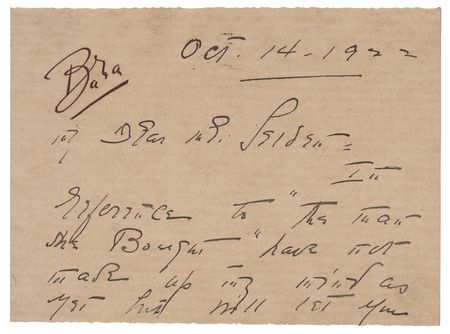 Oct. 14 - 1922
Bara
My Dear Mr. Selden =
In
Reference to "the man
she Bought" have not
made up my mind as
yet but will let you